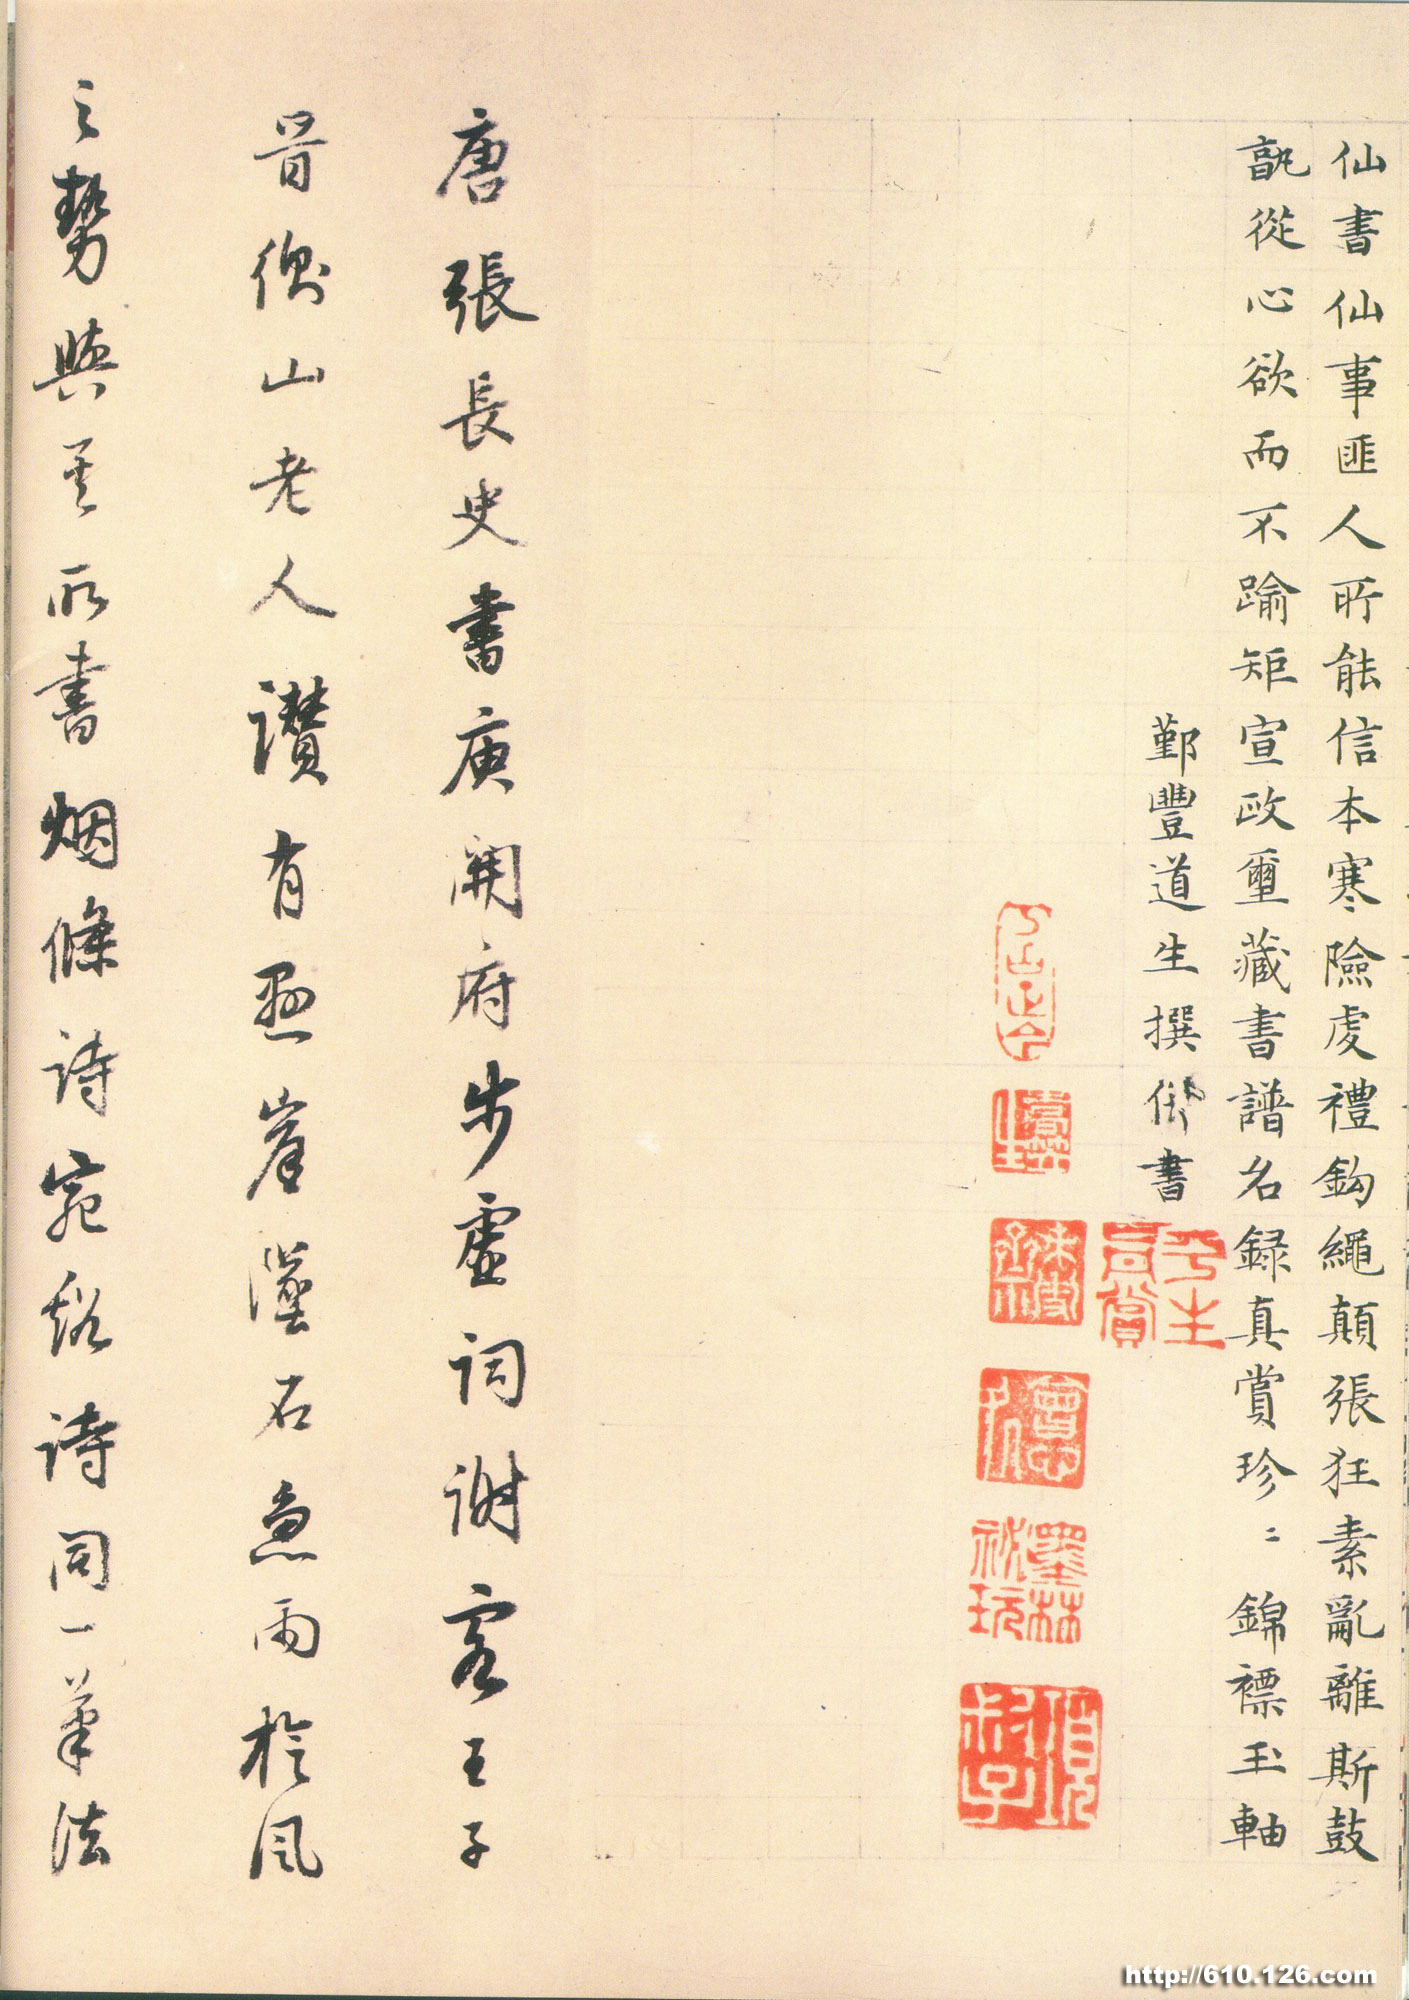 仙書仙事匪人所能信本寒險虔禮鈎繩顛張狂素亂離斯鼓
孰從心欲而不踰矩宣政璽藏書譜名録真賞珍〻錦褾玉軸
鄞豐道生撰併書
平生真賞
項子
墨林祕玩
唐張長史書庾開府步虛詞謝客王子
晉衡山老人讚有懸崖墜石急雨旋風
之勢與其所書烟條詩宛谿詩同一筆法
http://610.126.com